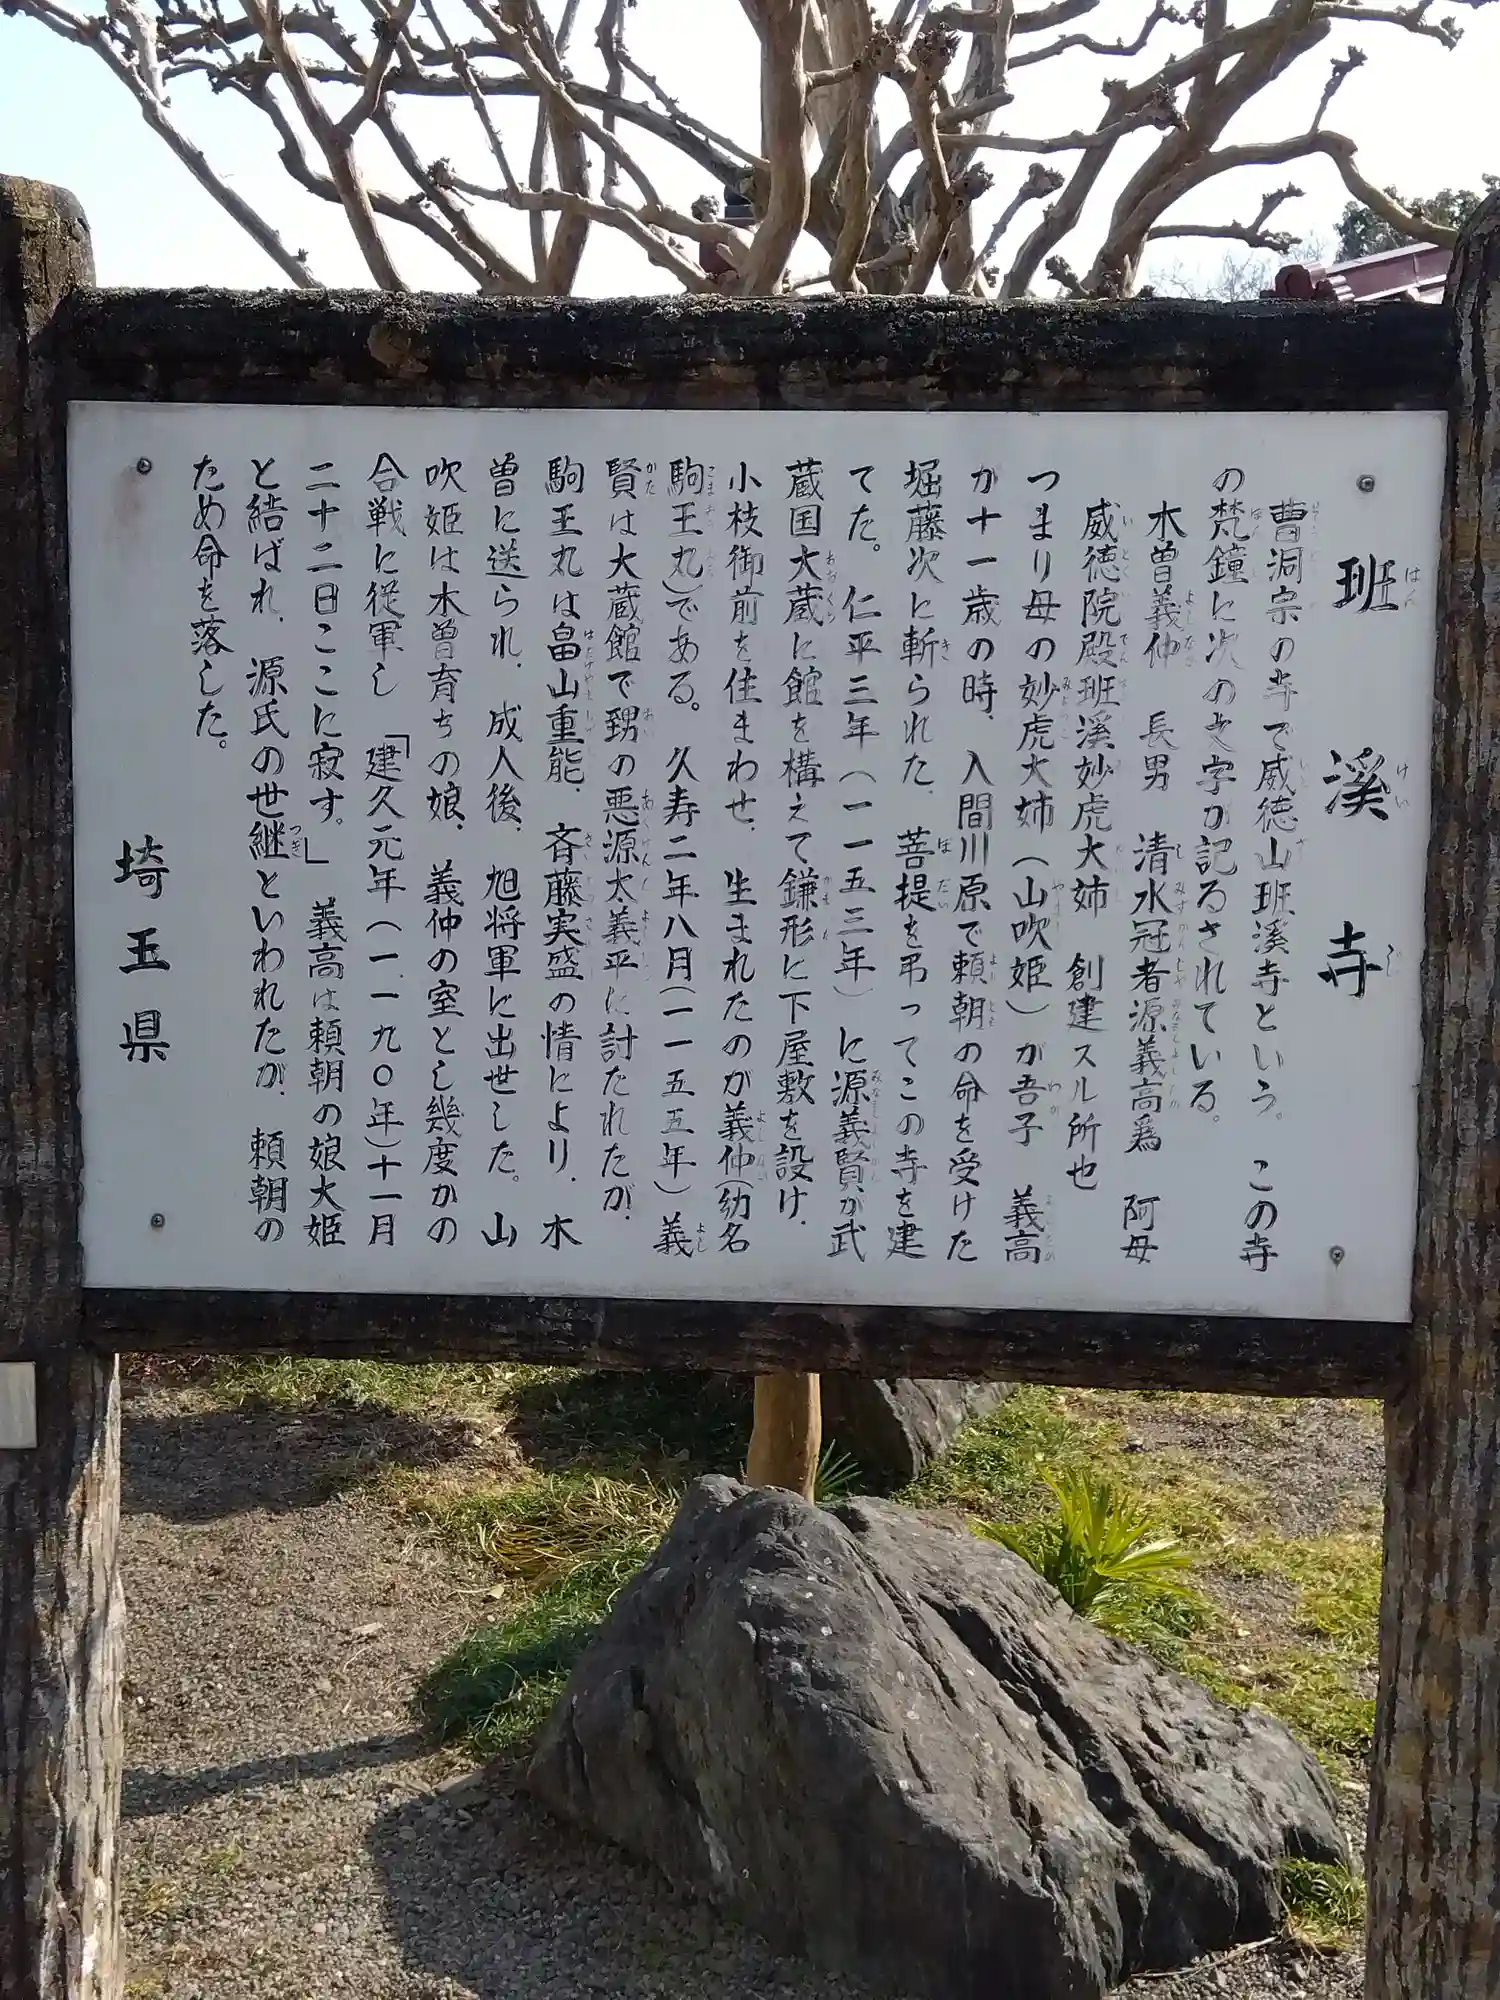 班溪寺
曹洞宗の寺で威徳山班溪寺という。この寺
の梵鐘に次の文字が記るされている。
木曽義仲　長男　清水冠者源義高為　阿母
威徳院殿班溪妙虎大姉　創建スル所也
つまり母の妙虎大姉（山吹姫）が吾子　義高
が十一歳の時、入間川原で頼朝の命を受けた
堀藤次に斬られた、菩提を弔ってこの寺を建
てた。仁平三年（一一五三年）に源義賢が武
蔵国大蔵に館を構えて鎌形に下屋敷を設け、
小枝御前を住まわせ、生まれたのが義仲（幼名
駒王丸）である。久寿二年八月（一一五五年）義
賢は大蔵館で甥の悪源太義平に討たれたが、
駒王丸は畠山重能、斉藤実盛の情により、木
曽に送られ、成人後、旭将軍に出世した。山
吹姫は木曽育ちの娘、義仲の室とし幾度かの
合戦に従軍し「建久元年（一一九〇年）十一月
二十二日ここに寂す。」義高は頼朝の娘大姫
と結ばれ、源氏の世継といわれたが、頼朝の
ため命を落した。
埼玉県